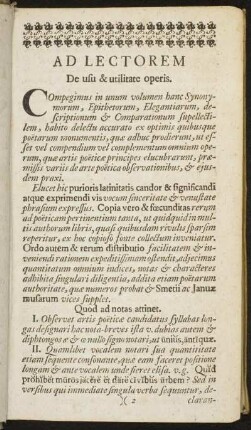 AD LECTOREM
De usu & utilitate operis.
Compegimus in unum volumen hanc Synony-
morum, Epithetorum, Elegantiarum, de-
scriptionum & Comparationum supellecti-
lem, habito delectu accurato ex optimis quibusque
poëtarum monumentis, quæ adhuc prodierunt, ut es-
set vel compendium vel complementum omnium ope-
rum, quæ artis poëticæ principes elucubrarunt, præ-
missis variis de arte poëtica observationibus, & ejus-
dem praxi.
Elucet hic purioris latinitatis candor & significandi
atque exprimendi vis vocum sinceritate & venustate
phrasium expressus. Copia vero & fœcunditas rerum
ad poëticam pertinentium tanta, ut quidquid in mul-
tis authorum libris, quasi quibusdam rivulis sparsim
reperitur, ex hoc copioso fonte collectum inveniatur.
Ordo autem & rerum distributio facilitatem & in-
veniendi rationem expeditissimam ostendit, adjecimus
quantitatum omnium indices, notas & characteres
adhibita singulari diligentia, addita etiam poëtarum
authoritate, quæ numeros probat & Smetii ac Januæ
musarum vices supplet.
Quod ad notas attinet.
I. Observet artis poëticæ candidatus syllabas lon-
gas designari hac nota - breves ista v. dubias autem &
diphtongos æ & œ nullo signo notari, ut unilis, antiquæ.
II. Quamlibet vocalem notari sua quantitate
etiam sequente consonante, quæ eam faceret positione
longam & ante vocalem unde fieret elisa. v. g. Quid
prohibet muros jacere et dare civibus urbem? Sed in
versibus qui immediate singula verba sequuntur, de-
2
claran-